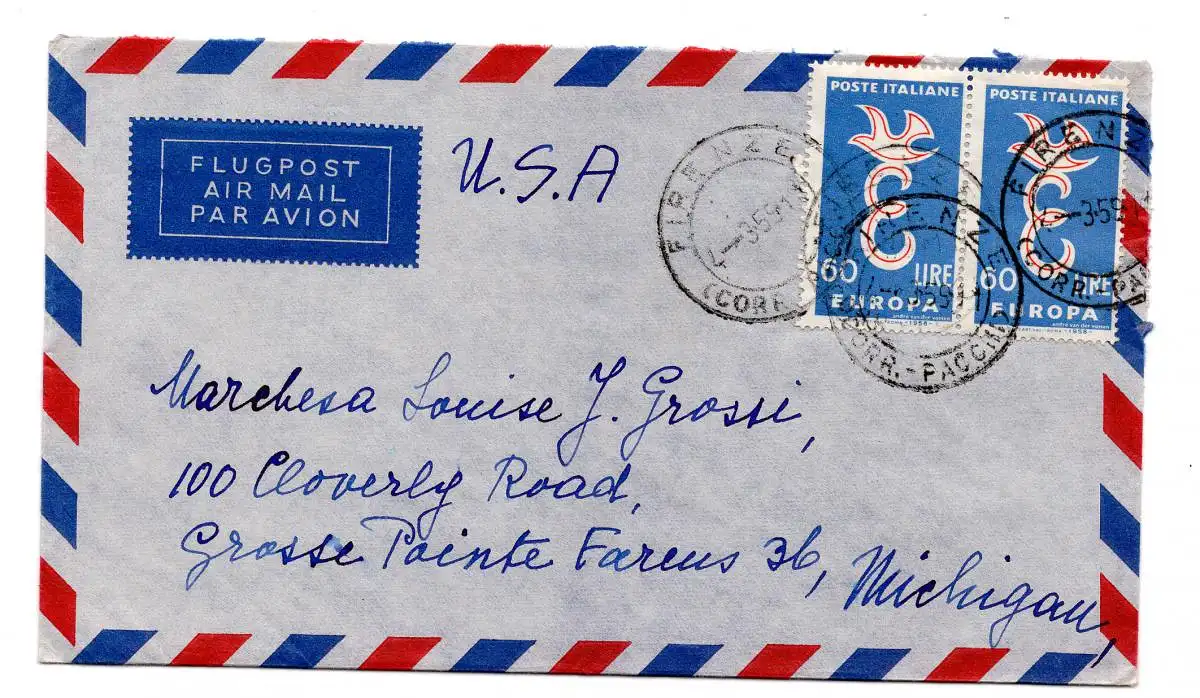 FLUGPOST
AIR MAIL
PAR AVION
U.S.A
POSTE ITALIANE
60 LIRE
EUROPA
POSTE ITALIANE
60 LIRE
EUROPA
andré van der vossen
1958
FIRENZE
3·59
(CORR.
FIRENZE
CORR.-PACCHI
FIRENZ
3·59
(CORR.-PA
Marchesa Louise J. Grossi,
100 Cloverly Road,
Grosse Pointe Farms 36, Michigan,